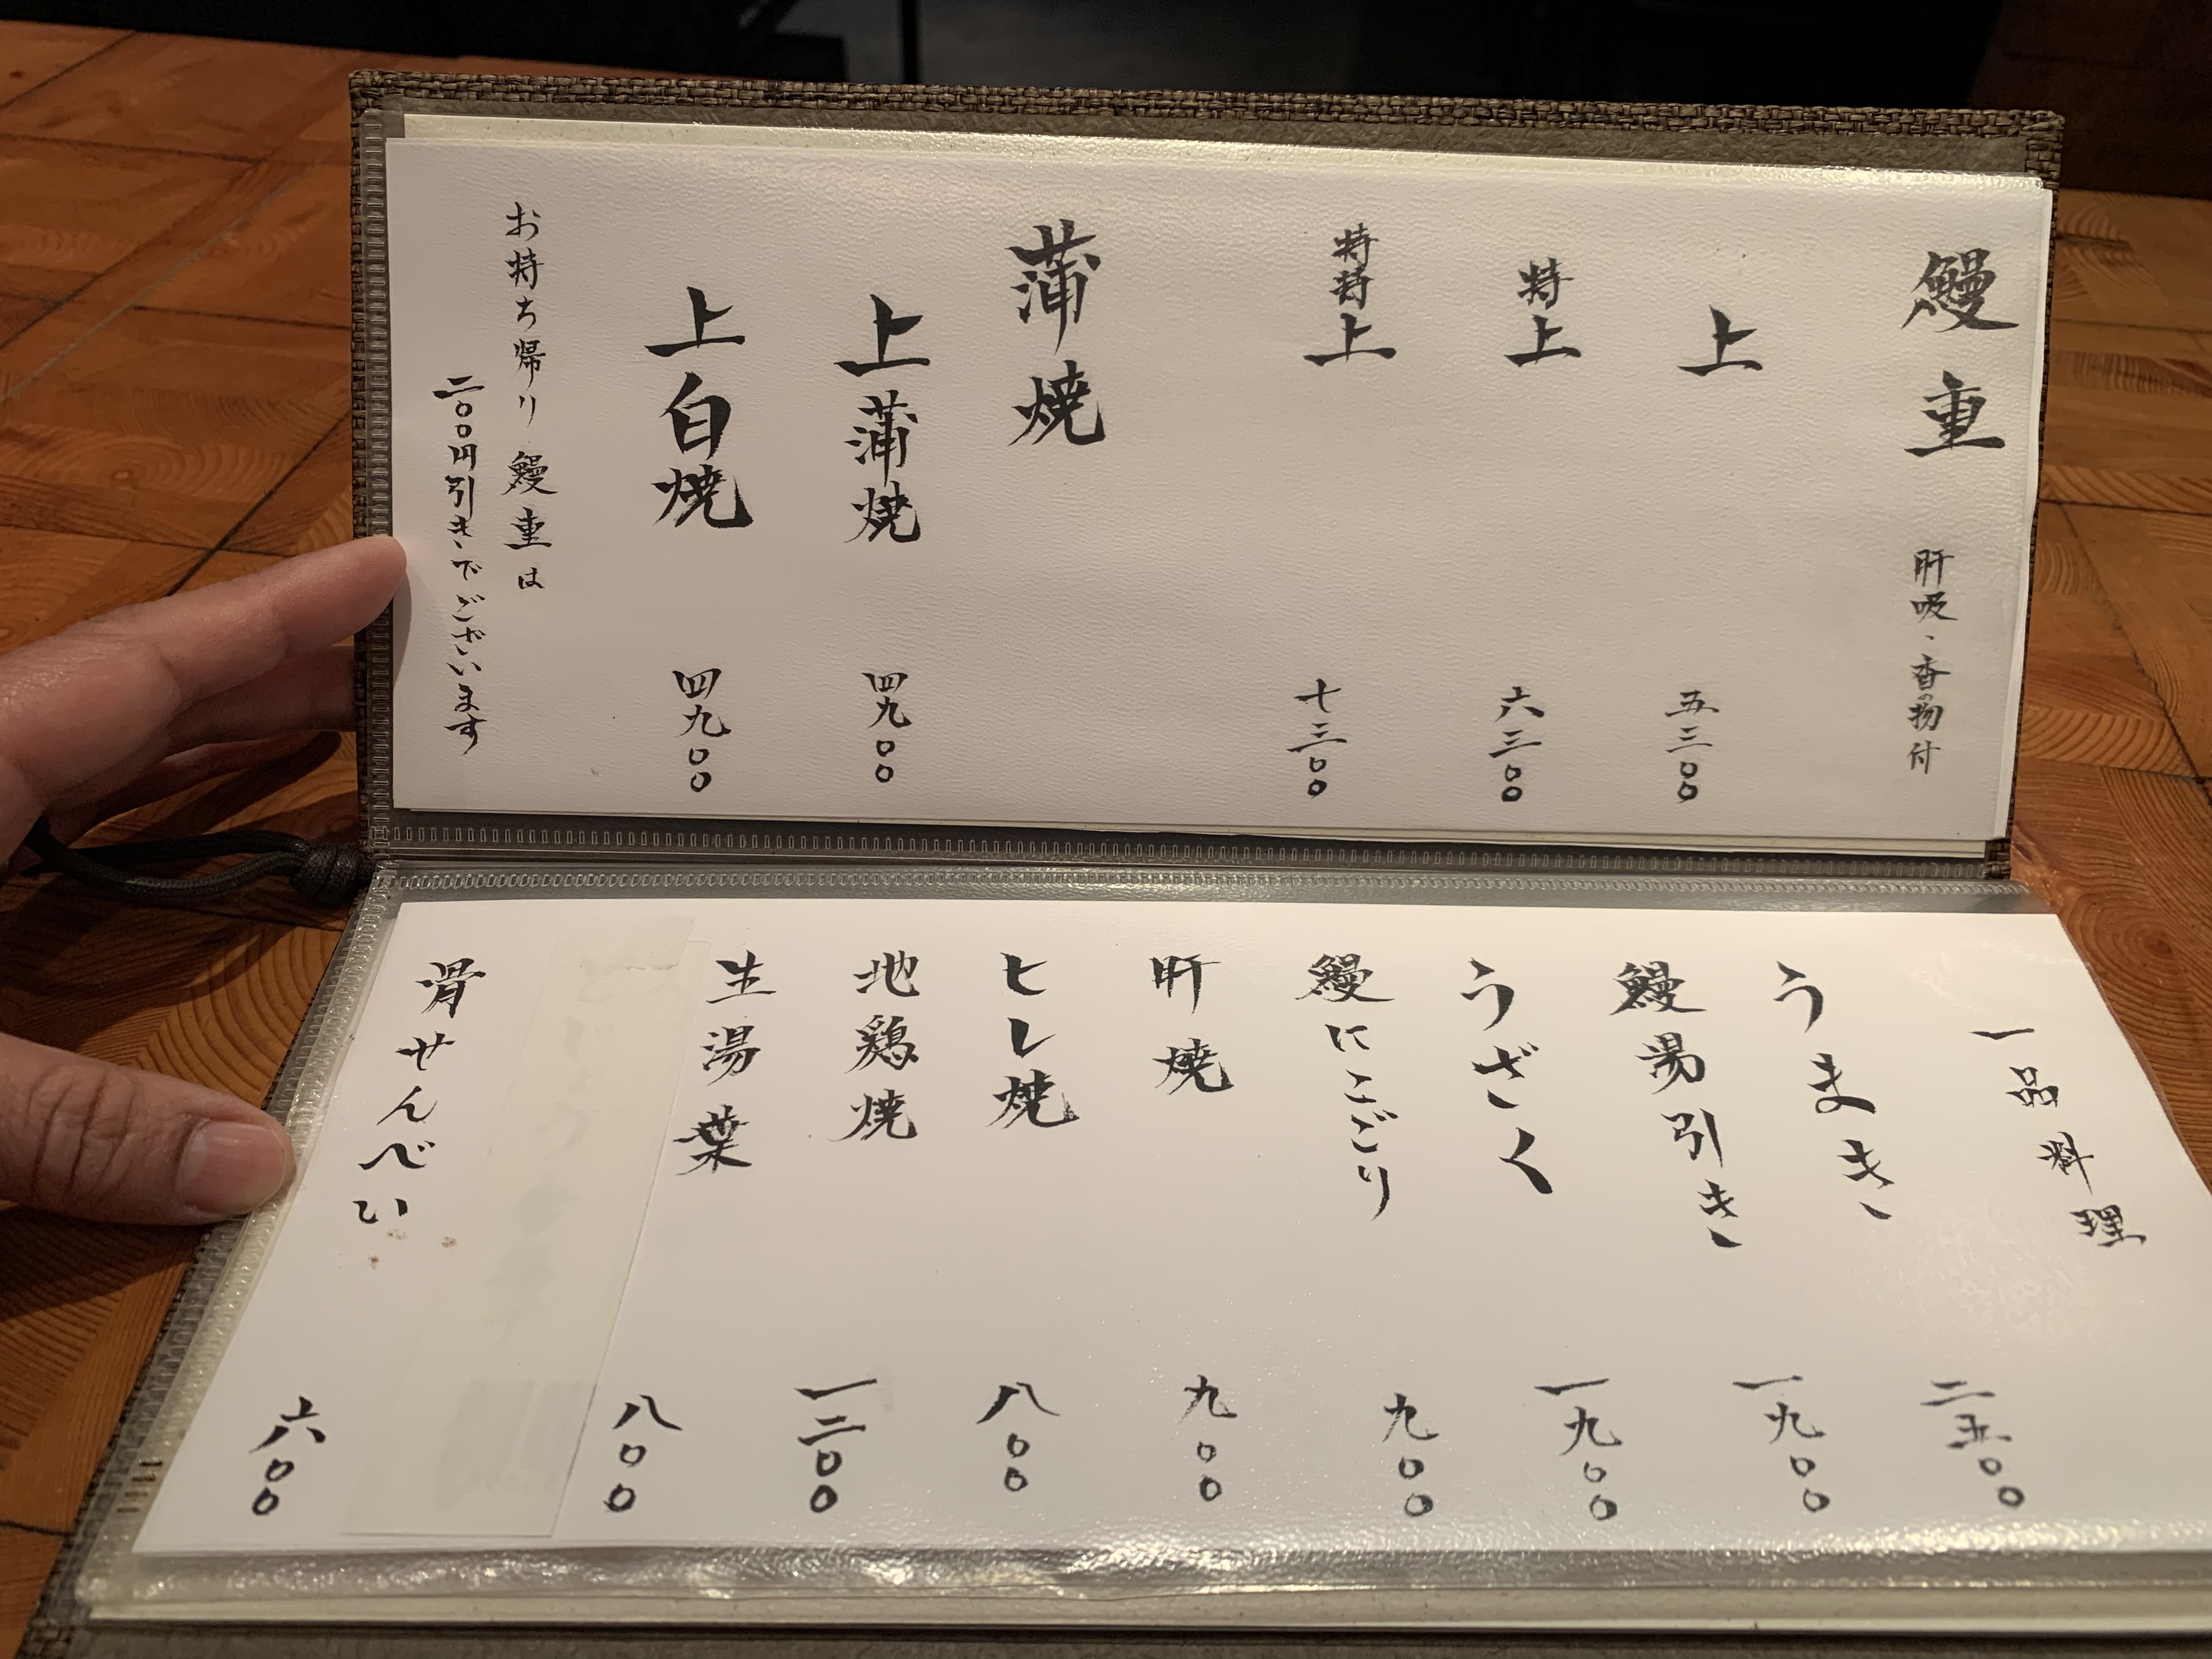 鰻重 肝吸、香の物付
上 五三〇〇
特上 六三〇〇
特特上 七三〇〇
蒲焼
上蒲焼 四九〇〇
上白焼 四九〇〇
お持ち帰り鰻重は
二〇〇円引きでございます
一品料理
うまき 二五〇〇
鰻湯引き 一九〇〇
うざく 一九〇〇
鰻にこごり 九〇〇
肝焼 九〇〇
ヒレ焼 八〇〇
地鶏焼 一二〇〇
生湯葉 八〇〇
骨せんべい 六〇〇